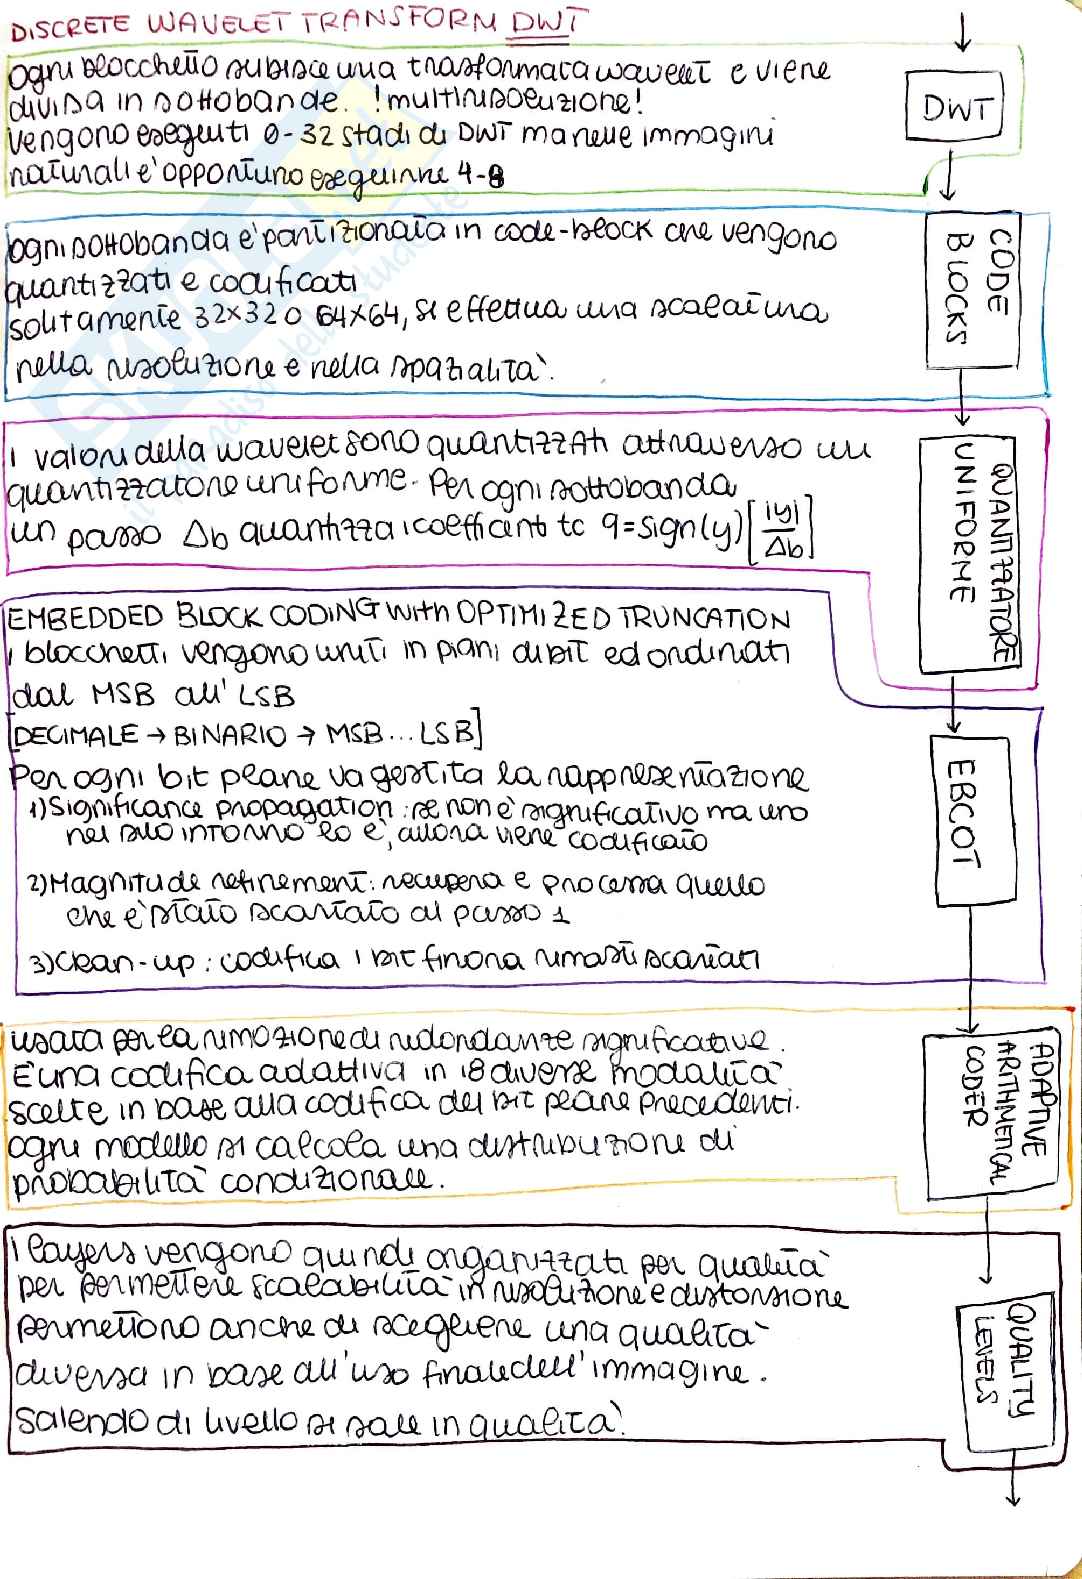 DISCRETE WAVELET TRANSFORM DWT
Ogni blocchetto subisce una trasformata wavelet e viene
divisa in sottobande. !multirisoluzione!
Vengono eseguiti 0-32 stadi di DWT ma nelle immagini
naturali è opportuno eseguirne 4-8
DWT
ogni sottobanda è partizionata in code-block che vengono
quantizzati e codificati
solitamente 32x32 o 64x64, si effettua una scalatura
nella risoluzione e nella spazialità.
CODE
BLOCKS
I valori della wavelet sono quantizzati attraverso un
quantizzatore uniforme. Per ogni sottobanda
un passo Δb quantizza i coefficienti tc q=sign(y)[|y|/Δb]
QUANTIZZATORE
UNIFORME
EMBEDDED BLOCK CODING WITH OPTIMIZED TRUNCATION
I blocchetti vengono uniti in piani di bit ed ordinati
dal MSB all'LSB
[DECIMALE → BINARIO → MSB...LSB]
Per ogni bit plane va gestita la rappresentazione
1) Significance propagation: se non è significativo ma uno
nel suo intorno lo è, allora viene codificato
2) Magnitude refinement: recupera e processa quello
che è stato scartato al passo 1
3) Clean-up: codifica i bit finora rimasti scartati
EBCOT
usata per la rimozione di ridondanze significative.
È una codifica adattiva in 18 diverse modalità
scelte in base alla codifica dei bit plane precedenti.
ogni modello si calcola una distribuzione di
probabilità condizionale.
ADAPTIVE
ARITHMETICAL
CODER
I layers vengono quindi organizzati per qualità
per permettere scalabilità in risoluzione e distorsione
permettono anche di scegliere una qualità
diversa in base all'uso finale dell'immagine.
Salendo di livello si sale in qualità.
QUALITY
LEVELS